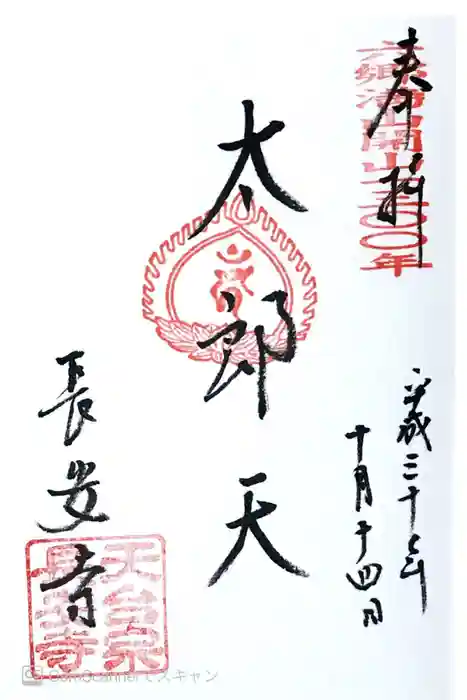 奉拝
六郷満山開山一三〇〇年
平成三十年
十月十四日
太郎天
長安寺
天台宗
長安寺
CamScannerでスキャン